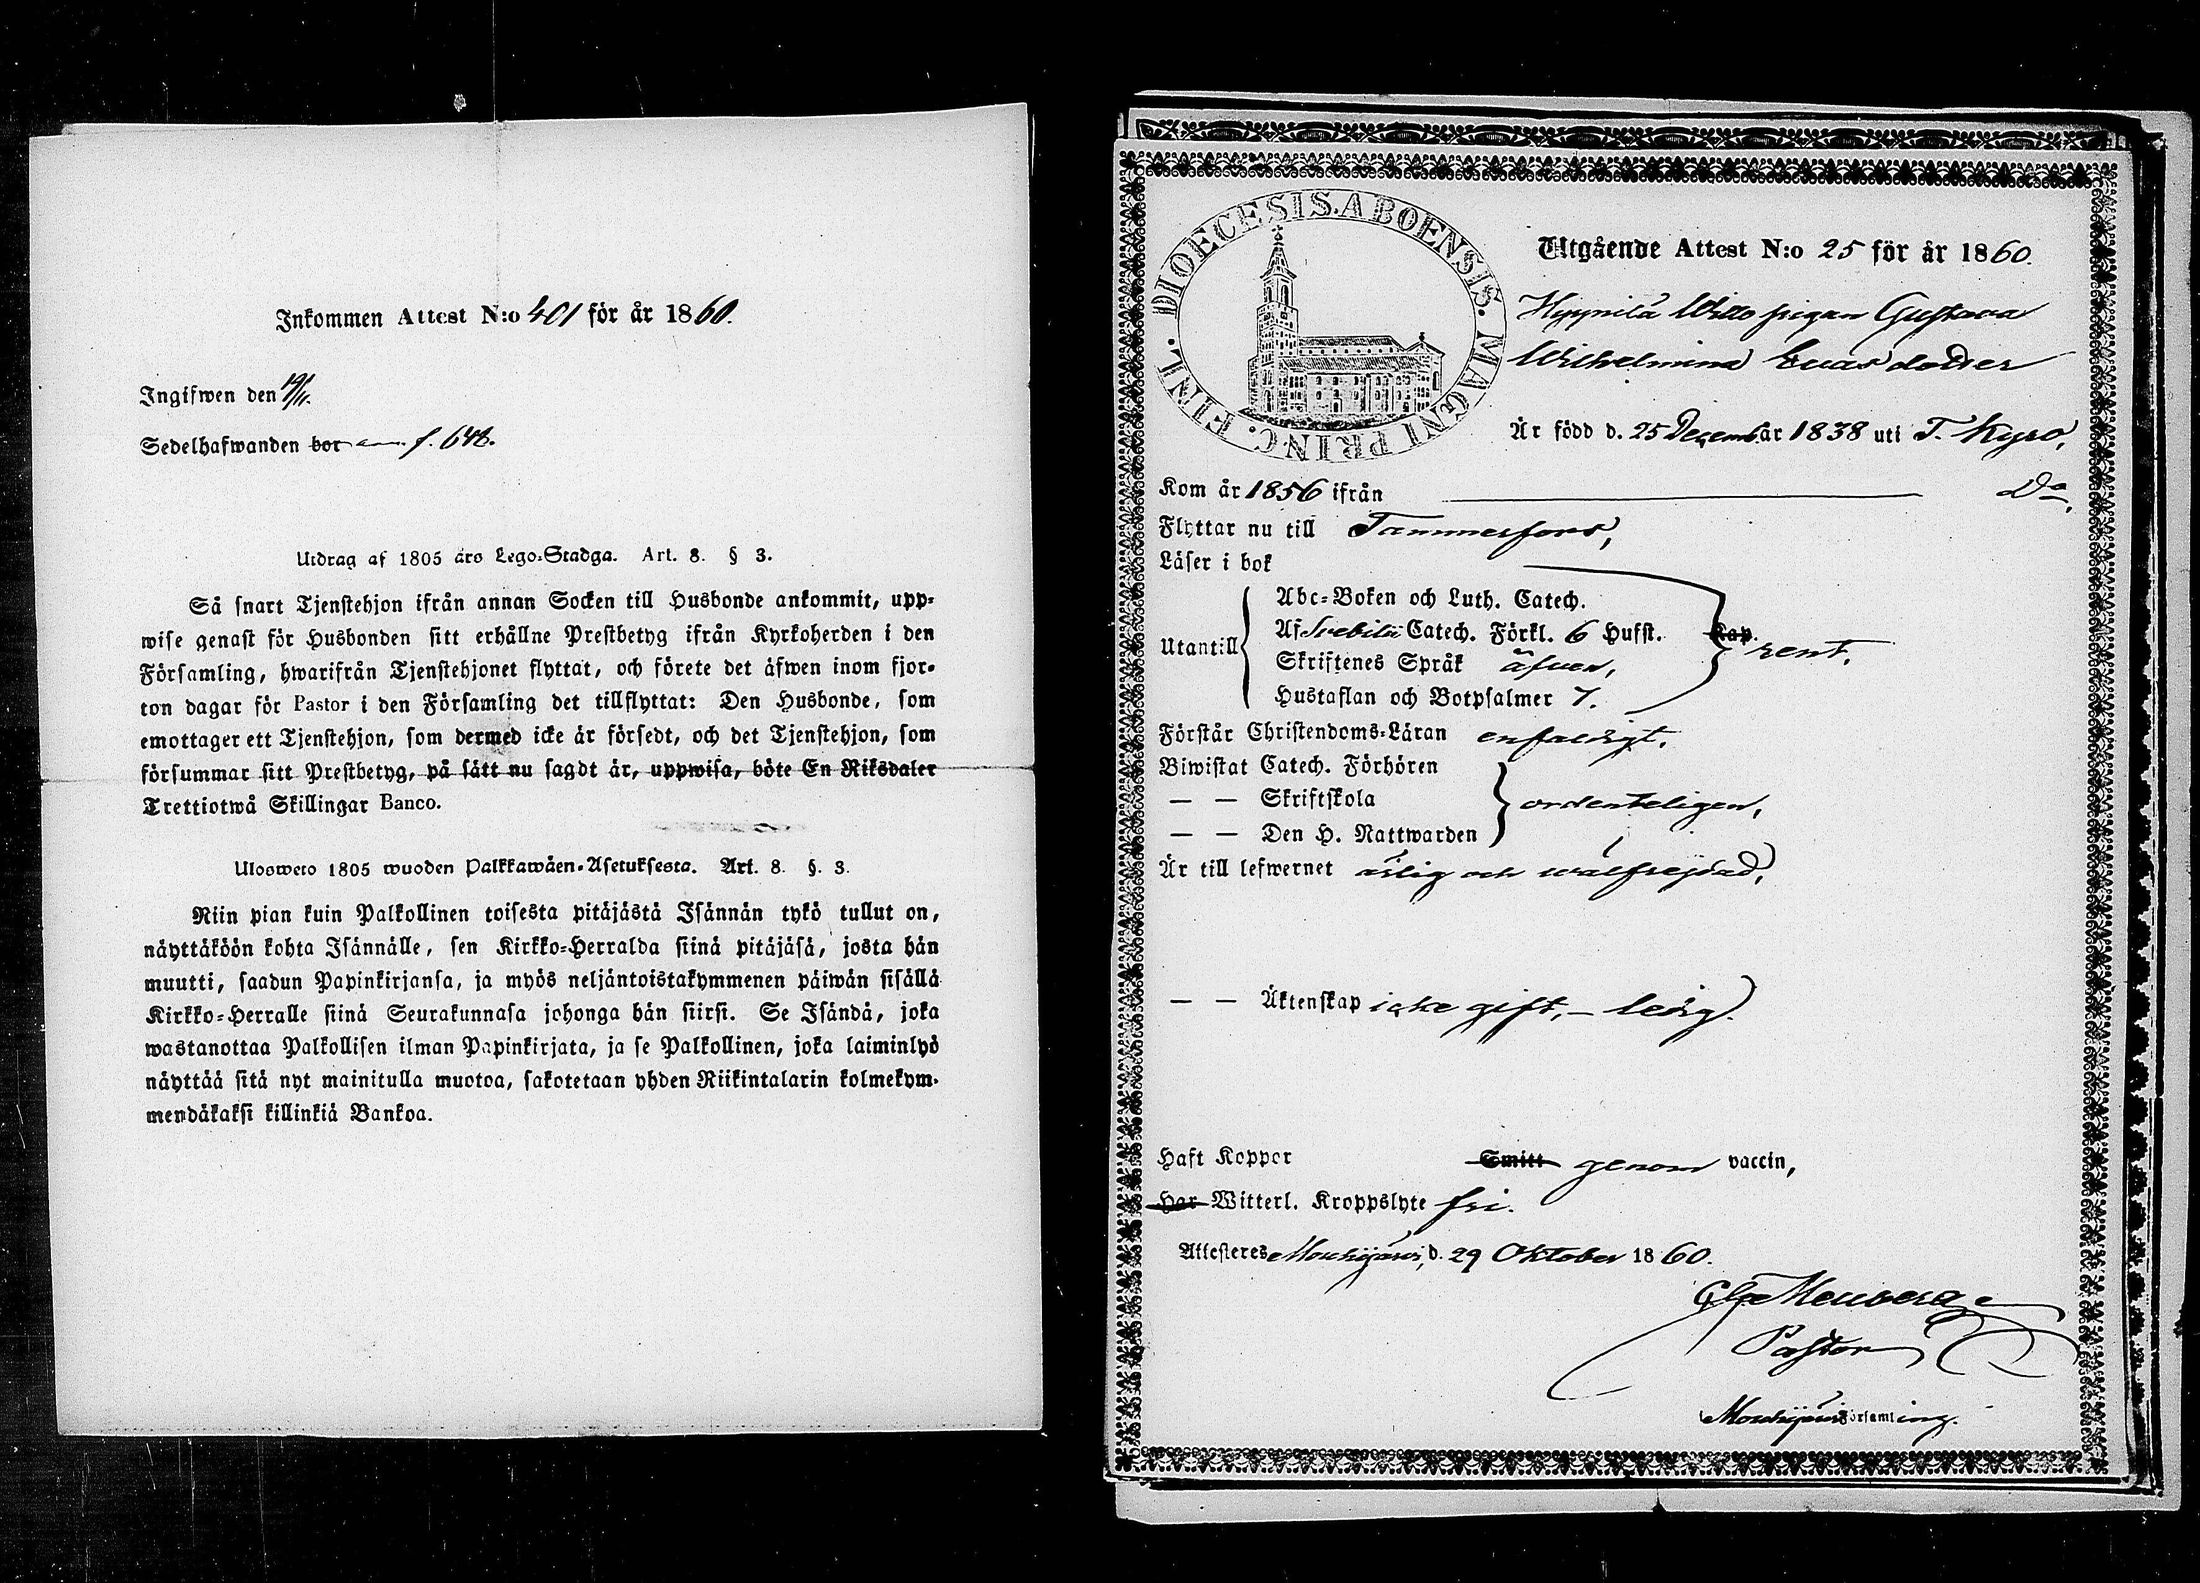 Inkommen Attest N:o 401 för år 1860.
Ingifwen den 19/11.
Sedelhafwanden bor f. 648.
Utdrag af 1805 års Lego-Stadga. Art. 8. § 3.
Så snart Tjenstehjon ifrån annan Socken till Husbonde ankommit, upp-
wise genast för Husbonden sitt erhållne Prestbetyg ifrån Kyrkoherden i den
Församling, hwarifrån Tjenstehjonet flyttat, och förete det äfwen inom fjor-
ton dagar för Pastor i den Församling det tillflyttat: Den Husbonde, som
emottager ett Tjenstehjon, som dermed icke är försedt, och det Tjenstehjon, som
försummar sitt Prestbetyg, på sätt nu sagdt är, uppwisa, böte En Riksdaler
Trettiotwå Skillingar Banco.
Ulosweto 1805 wuoden Palkkawäen-Asetuksesta. Art. 8. §. 3.
Niin pian kuin Palkollinen toisesta pitäjästä Isännän tykö tullut on,
näyttäköön kohta Isännälle, sen Kirkko-Herralda siinä pitäjäsä, josta hän
muutti, saadun Papinkirjansa, ja myös neljäntoistakymmenen päiwän sisällä
Kirkko-Herralle siinä Seurakunnasa johonga hän siirsi. Se Isändä, joka
wastanottaa Palkollisen ilman Papinkirjata, ja se Palkollinen, joka laiminlyö
näyttää sitä nyt mainitulla muotoa, sakotetaan yhden Riikintalarin kolmekym-
mendäkaksi killinkiä Bankoa.
DIOECESIS. ABOENSIS. MAGNI PRINC. FINL.
Utgående Attest N:o 25 för år 1860.
pigan Gustava
Wilhelmina Evasdotter
Är född d. 25 Decemb. år 1838 uti T. Kyro,
Kom år 1856 ifrån Do,
Flyttar nu till Tammerfors,
Läser i bok
Utantill
Abc-Boken och Luth. Catech.
Af Svebilii Catech. Förkl. 6 Hufst. Kap.
Skriftenes Språk äfven,
Hustaflan och Botpsalmer 7.
rent.
Förstår Christendoms-Läran enfaldigt.
Biwistat Catech. Förhören
— — Skriftskola
— — Den H. Nattwarden
ordenteligen,
Är till lefwernet ärlig och wälfrejdad,
— — Äktenskap icke gift, – ledig.
Haft Koppor Smitt genom vaccin,
Har Witterl. Kroppslyte fri.
Attesteras Mouhijärvi, d. 29 Oktober 1860.
Pastor
Mouhijärvi Församling.